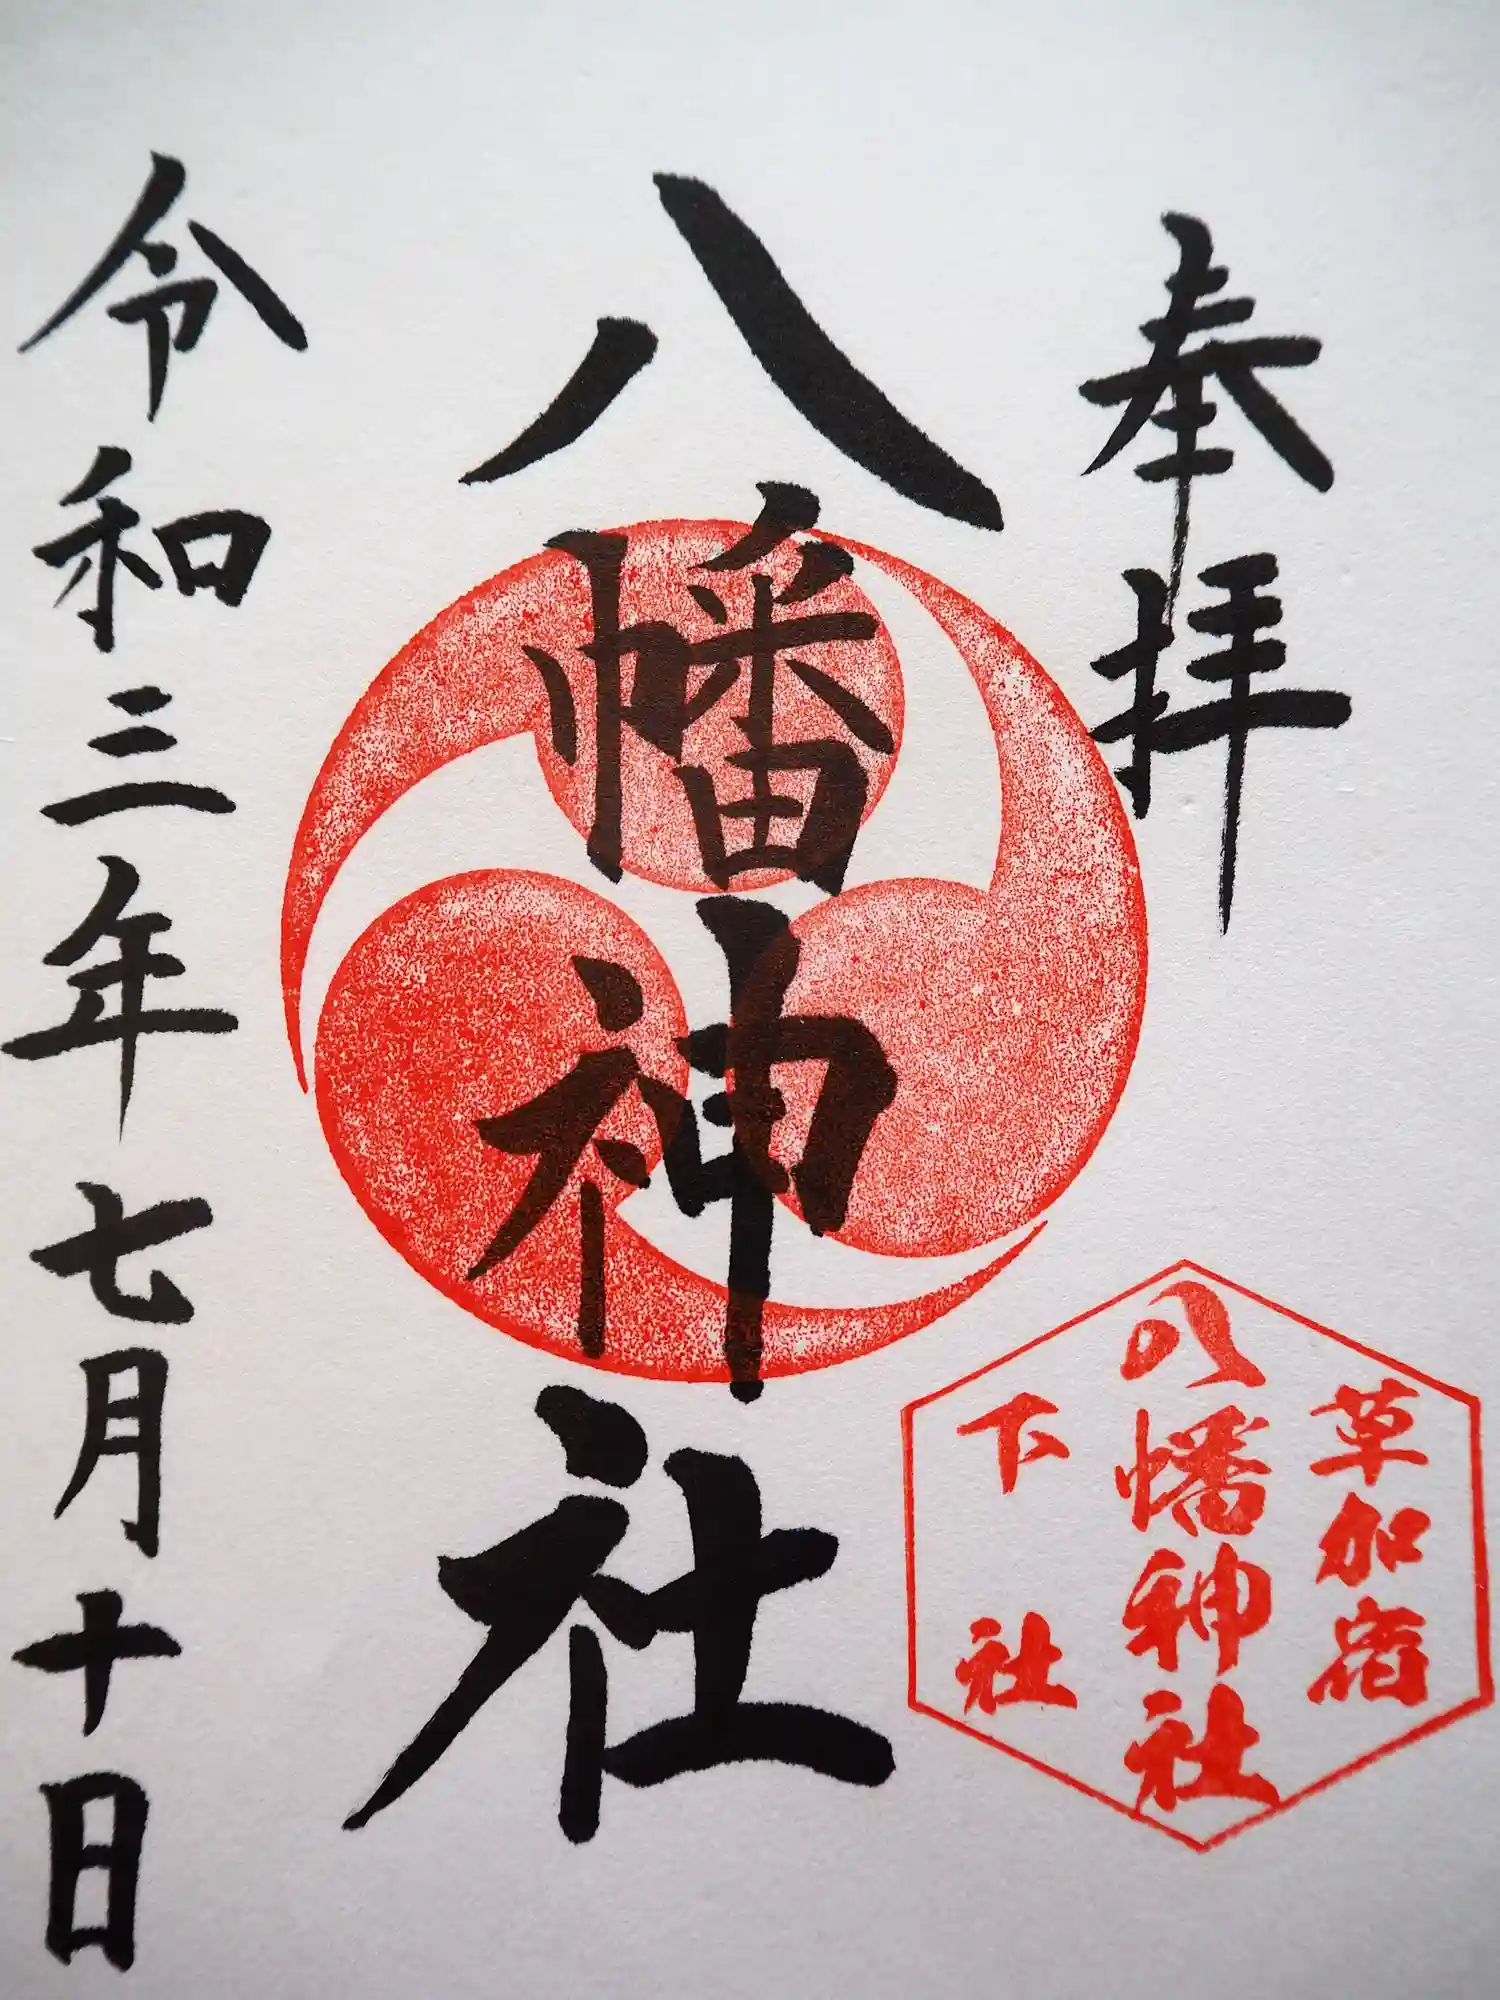 奉拝
草加宿
八幡神社
下社
八幡神社
令和三年七月十日